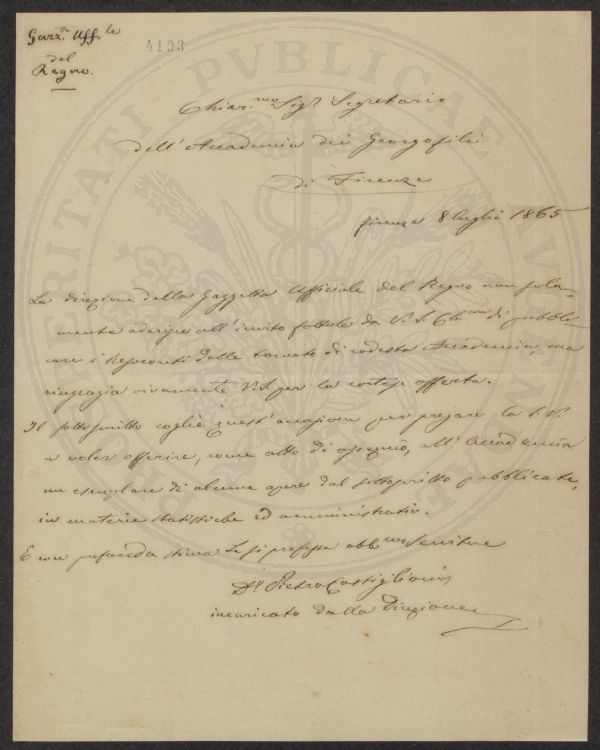 Gazz.ta Uff.le
del
Regno.
4193
Chiar.mo Sig.r Segretario
dell'Accademia dei Georgofili
di Firenze
Firenze 8 luglio 1865
La direzione della Gazzetta Ufficiale del Regno non sola-
mente aderisce all'invito fattole da V. S. Ch.ma di pubbli-
care i Resoconti delle tornate di codesta Accademia, ma
ringrazia vivamente V.S. per la cortese offerta.
Il sottoscritto coglie quest'occasione per pregare la S.V.
a voler offerire, come atto di ossequio, all'Accademia
un esemplare di alcune opere dal sottoscritto pubblicate,
in materie statistiche ed amministrative.
E con profonda stima Le si professa obb.mo Servitore
D.r Pietro Castiglioni,
incaricato dalla Direzione
PVBLICAE